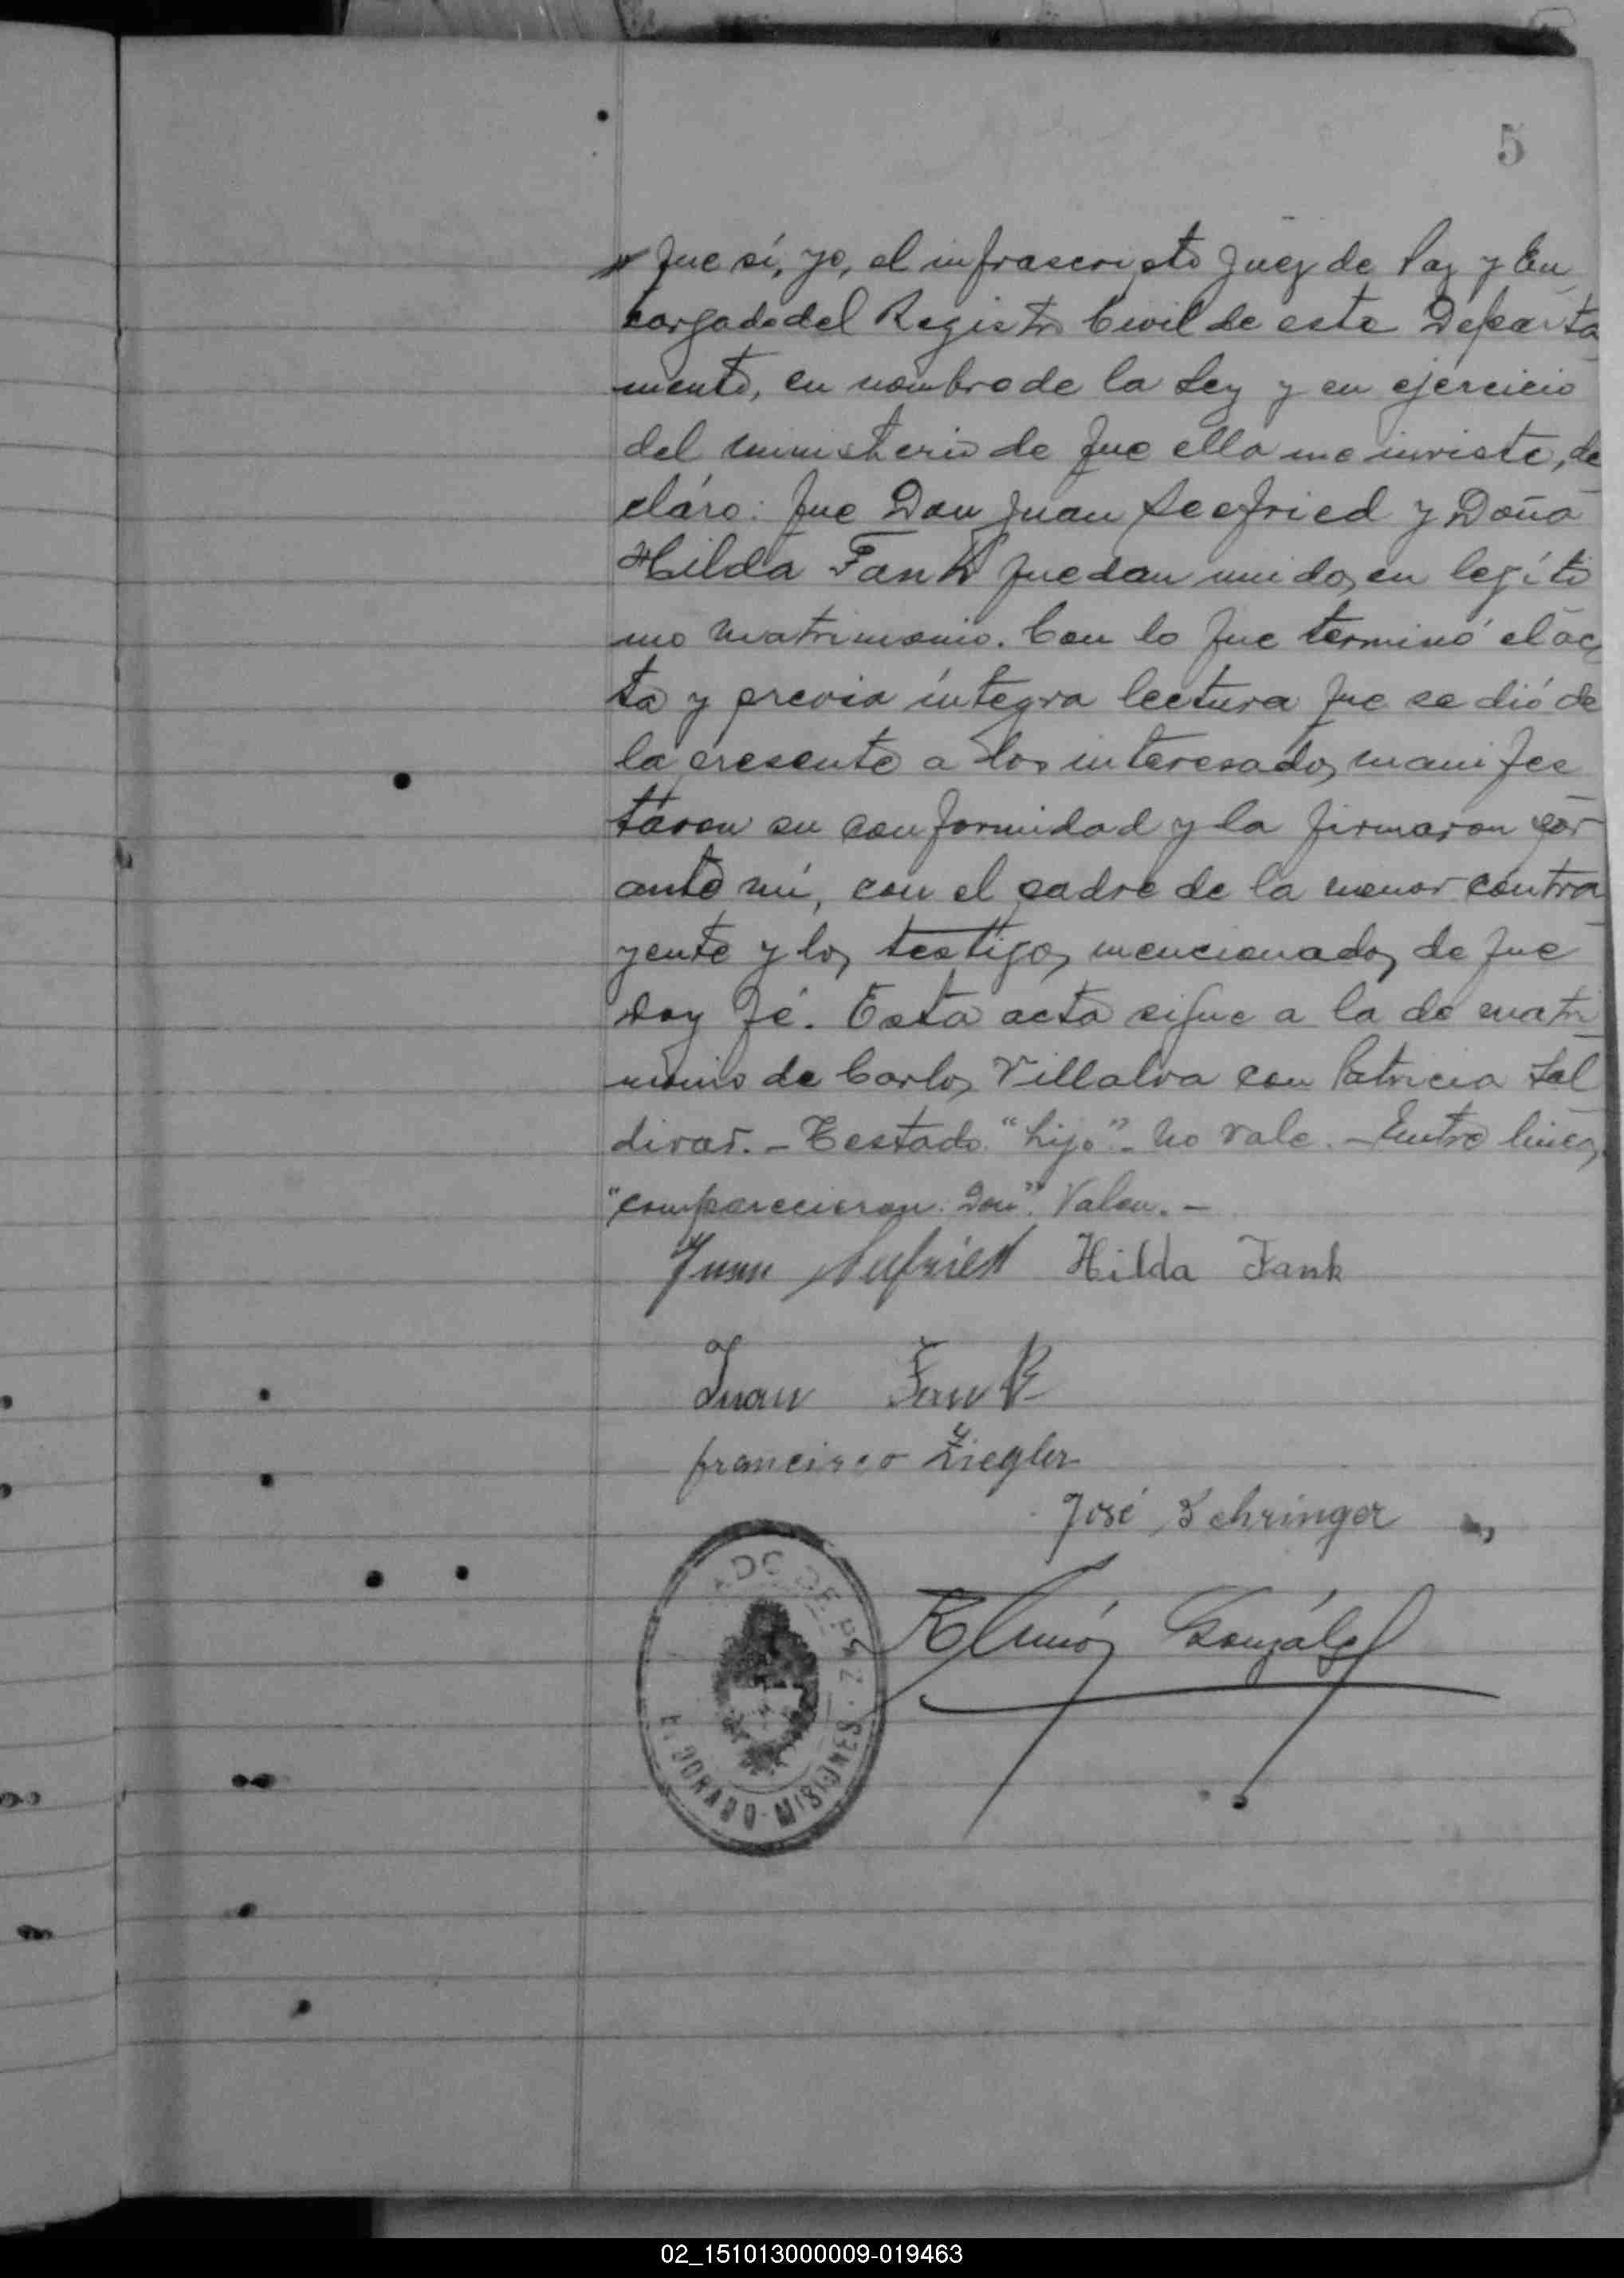 5
que sí, yo, el infrascripto Juez de Paz y En
cargado del Registro Civil de este Departa
mento, en nombre de la Ley y en ejercicio
del ministerio de que ella me inviste, de
cláro: que Don Juan Seefried y Doña
Hilda Fank quedan unidos en legíti
mo matrimonio. Con lo que terminó el ac
to y previa íntegra lectura que se dió de
la presente a los interesados, manifes
táron su conformidad y la firmaron por
ante mí, con el padre de la menor contra
yente y los testigos mencionados, de que
doy fé. Esta acta sigue a la de matri
monio de Carlos Villalva con Patricia Sal
divar. - Testado "hijo" - no vale. - Entre líneas,
"comparecieron: Don". Valen. -
Juan Seefried Hilda Fank
Juan Fank
francisco Ziegler
José Sehringer
González
ADO DE PAZ
ELDORADO - MISIONES
02_151013000009-019463